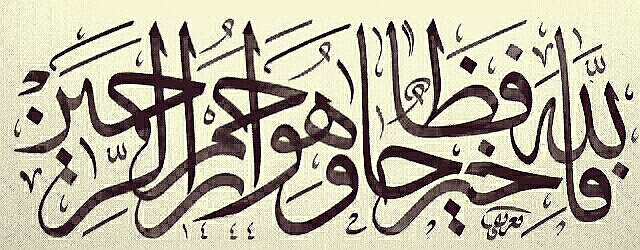 فالله خير حافظا وهو أرحم الراحمين
١٤٤٤